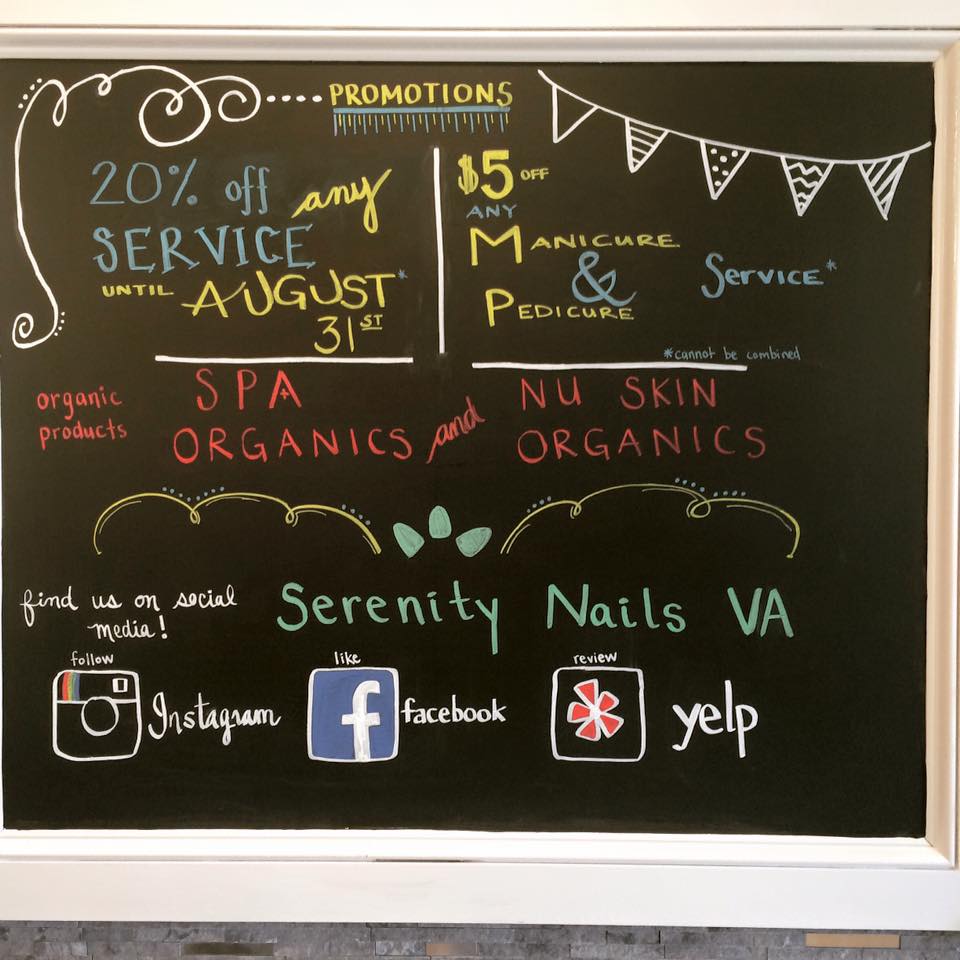 PROMOTIONS
20% off any
SERVICE
UNTIL AUGUST*
31ST
$5 OFF
ANY
MANICURE
& SERVICE*
PEDICURE
*cannot be combined
organic
products
SPA
ORGANICS and
NU SKIN
ORGANICS
find us on social
media!
Serenity Nails VA
follow
Instagram
like
f facebook
review
yelp